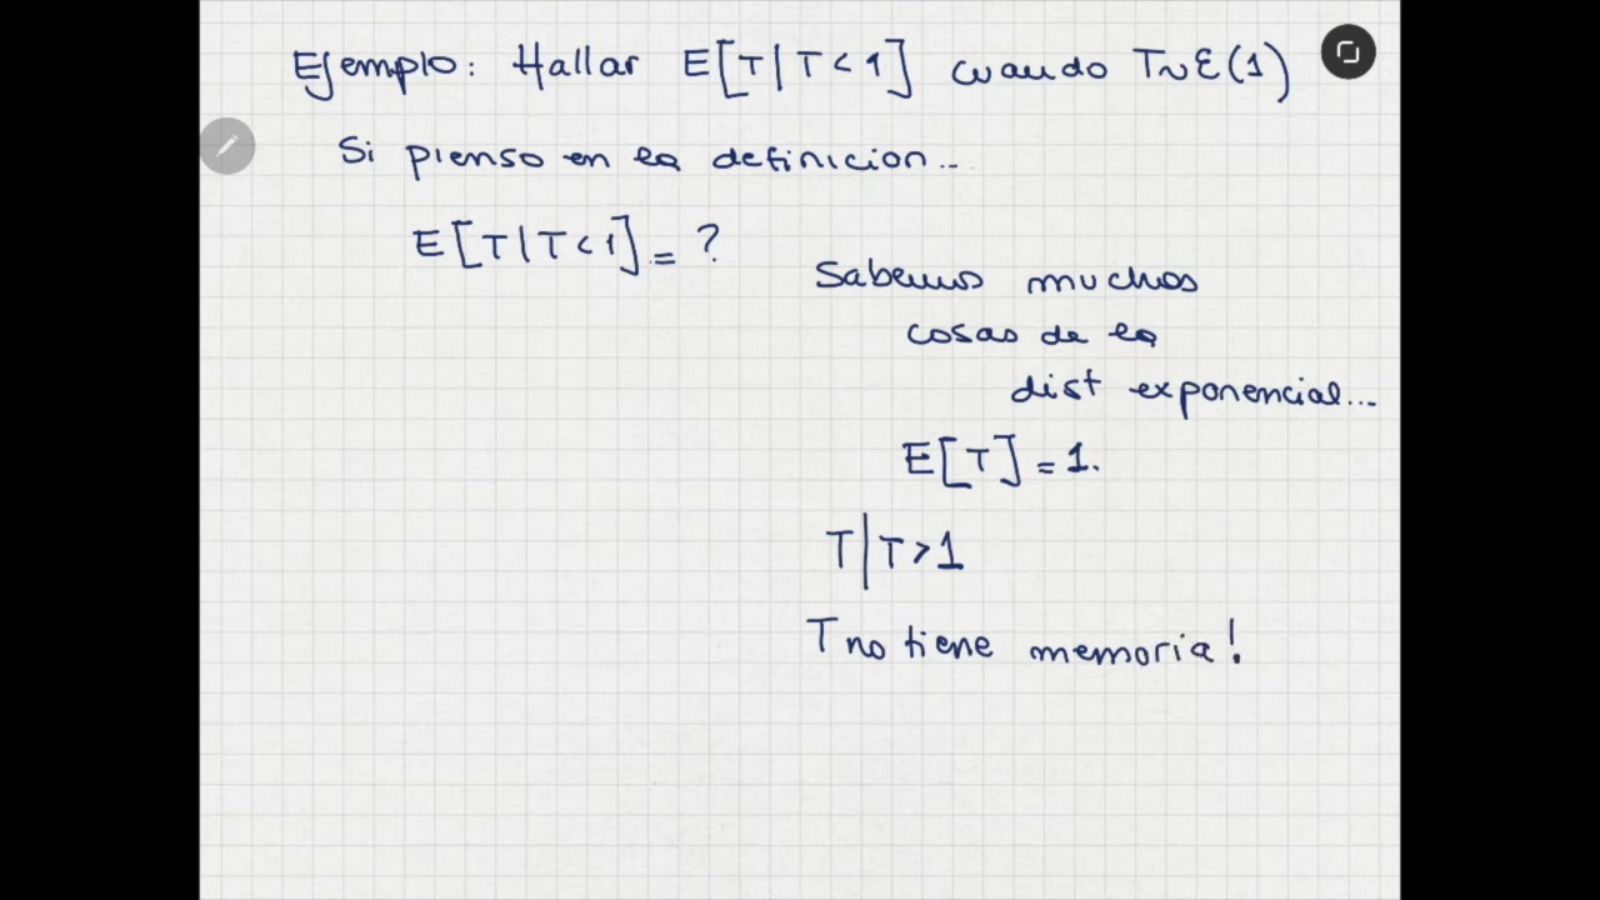 Ejemplo: Hallar E[T|T<1] cuando T~ε(1)
Si pienso en la definicion...
E[T|T<1] = ?
Sabemos muchos
cosas de la
dist exponencial...
E[T] = 1.
T|T>1
T no tiene memoria!